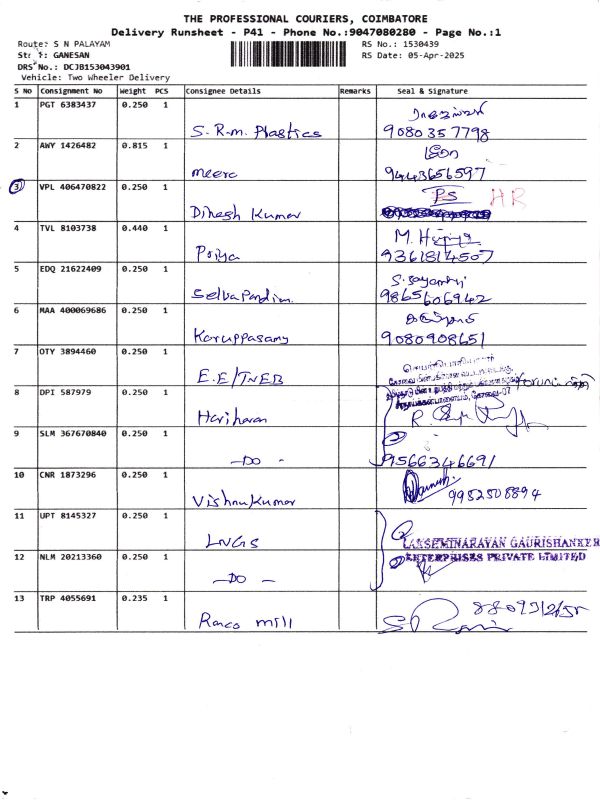 THE PROFESSIONAL COURIERS, COIMBATORE
Delivery Runsheet - P41 - Phone No.:9047080280 - Page No.:1
Route: S N PALAYAM RS No.: 1530439
GANESAN RS Date: 05-Apr-2025
DRS No.: DCJB153043901
Vehicle: Two Wheeler Delivery
S NO Consignment No Weight PCS Consignee Details Remarks Seal & Signature
1 PGT 6383437 0.250 1
S.R.m. Plastics 9080357798
2 AWY 1426482 0.815 1
meera 9443656597
3 VPL 406470822 0.250 1 PS HR
Dinesh Kumar
4 TVL 8103738 0.440 1 M.
Poiya 9361814507
5 EDQ 21622409 0.250 1
Selvapandian 9865606942
6 MAA 400069686 0.250 1
Karuppasamy 9080908651
7 OTY 3894460 0.250 1
E.E/TNEB
8 DPI 587979 0.250 1
Hariharan
9 SLM 367670840 0.250 1
-DO- 9566346691
10 CNR 1873296 0.250 1
Vishnukumar 9952508894
11 UPT 8145327 0.250 1
LNGS LAKSEMINARAYAN GAURISHANKER
12 NLM 20213360 0.250 1 ENTERPRISES PRIVATE LIMITED
-DO-
13 TRP 4055691 0.235 1
mill